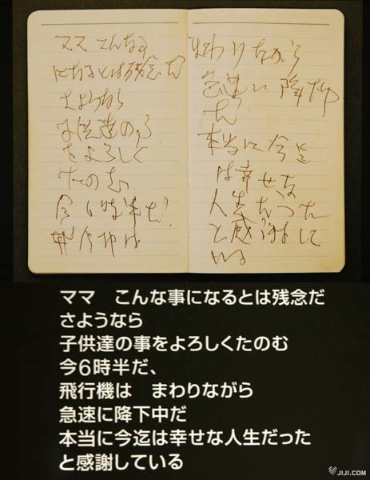 ママ こんな事
になるとは残念だ
さようなら
子供達の事
をよろしく
たのむ
今6時半だ
飛行機は
まわりながら
急速に降下中
だ
本当に今迄
は幸せな
人生だった
と感謝して
いる
ママ こんな事になるとは残念だ
さようなら
子供達の事をよろしくたのむ
今6時半だ、
飛行機は まわりながら
急速に降下中だ
本当に今迄は幸せな人生だった
と感謝している
JIJI.COM